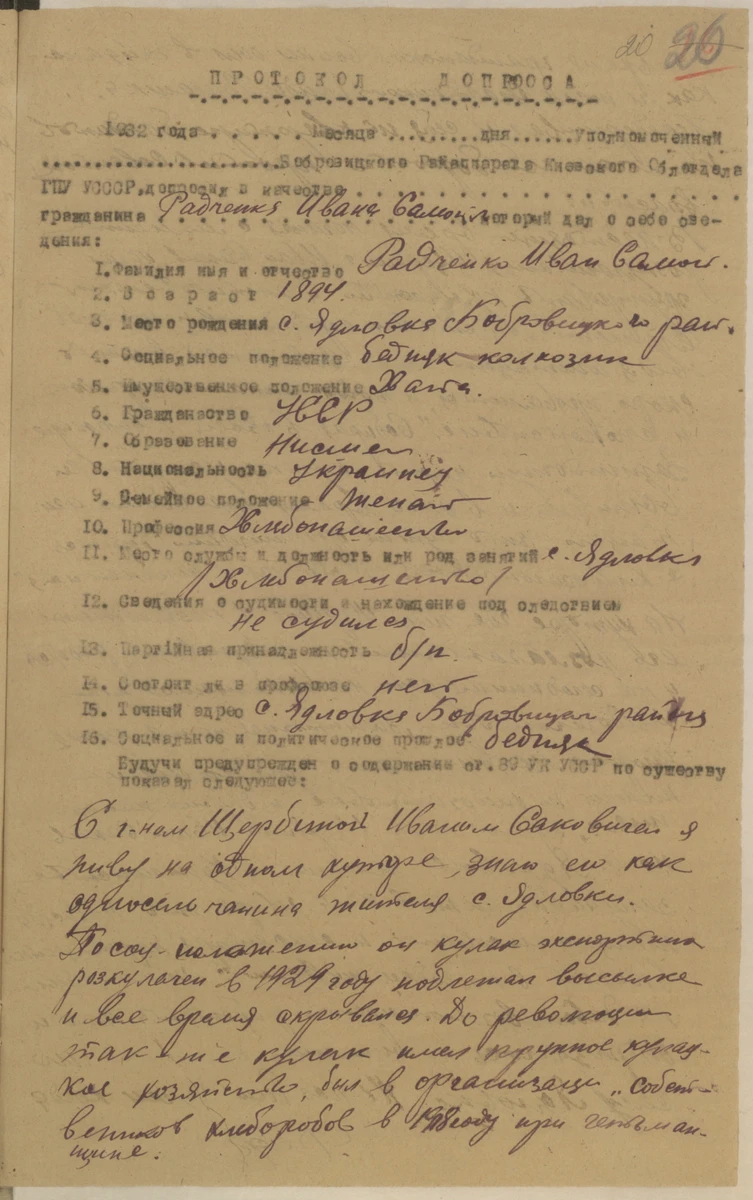 20 26
ПРОТОКОЛ ДОПРОСА
1932 года . . . . . . месяца .........дня......Уполномоченный
.......................Бобровицкого Райаппарата Киевского Облотдела
ГПУ УССР, допросил в качестве . . . . . . . . . . . . . . . .
гражданина Радченка Ивана который дал о себе све-
дения:
1. Фамилия имя и отчество Радченко Иван
2. Возраст 1894.
3. Место рождения с. Ядловка Бобровицкого рай.
4. Социальное положение бедняк колхозник
5. Имущественное положение Хата.
6. Гражданство УССР
7. Образование
8. Национальность Украинец
9. Семейное положение женат
10. Профессия Хлебопашество
11. Место службы и должность или род занятий с. Ядловка
/Хлебопашество/
12. Сведения о судимости и нахождение под следствием
не судился
13. Партийная принадлежность б/п.
14. Состоит ли в профсоюзе нет
15. Точный адрес с. Ядловка Бобровицкого района
16. Социальное и политическое прошлое бедняк
Будучи предупрежден о содержание ст. 89 УК УССР по существу
показал следующее:
С г-ном Щербиной Иваном Саковичем я
живу на одном хуторе, знаю его как
односельчанина жителя с. Ядловки.
По соц-положению он кулак
розкулачен в 1929 году подлежал высылке
и все время скрывался. До революции
так-же кулак имел крупное кулац-
кое хозяйство, был в организации „собст-
венников хлеборобов в 1918 году при гетьман-
щине.